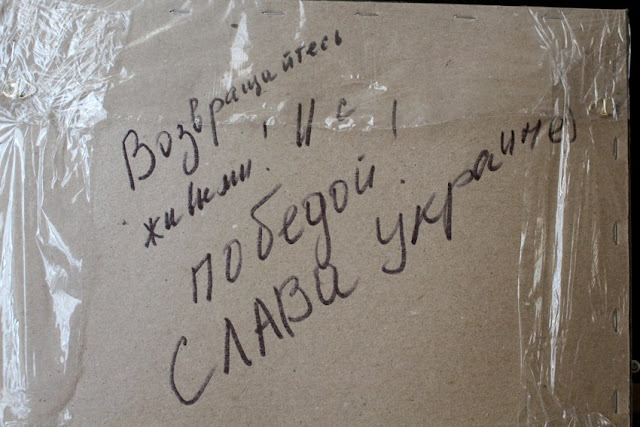 Возвращайтесь
живыми! И с
победой!
СЛАВА украине)